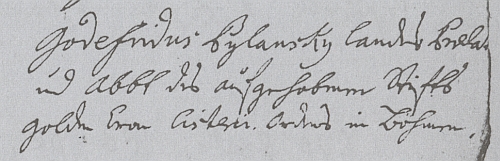 Godefridus Bylansky Landes Prela
und Abbt des aufgehobenen Stifts
golden Cron Cisterc. Ordens in Böhmen.